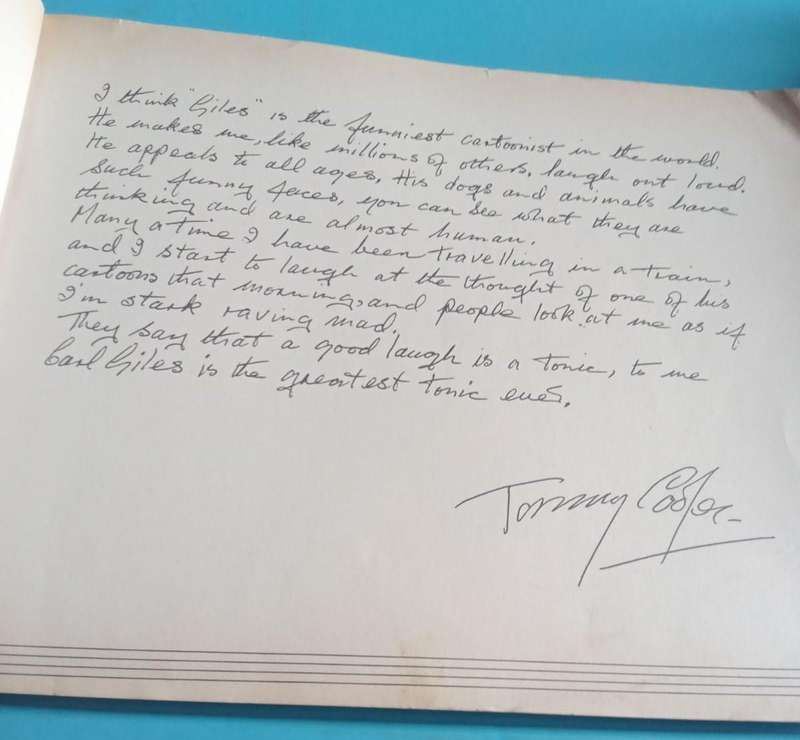 I think "Giles" is the funniest cartoonist in the world.
He makes me, like millions of others, laugh out loud.
He appeals to all ages. His dogs and animals have
such funny faces, you can see what they are
thinking and are almost human.
Many a time I have been travelling in a train,
and I start to laugh at the thought of one of his
cartoons that morning, and people look at me as if
I'm stark raving mad.
They say that a good laugh is a tonic, to me
Carl Giles is the greatest tonic ever.
Tommy Cooper